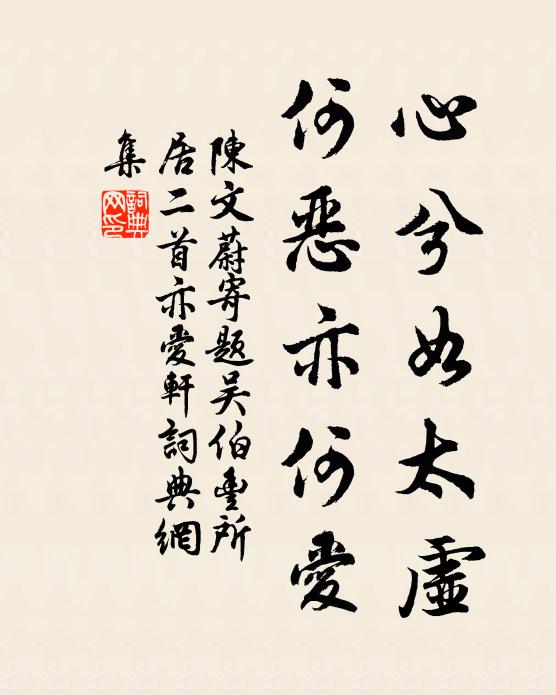 心兮如太虛
何惡亦何愛
陳文蔚寄題吴伯豊所
居二首亦愛軒詞典網
集
詞典网印